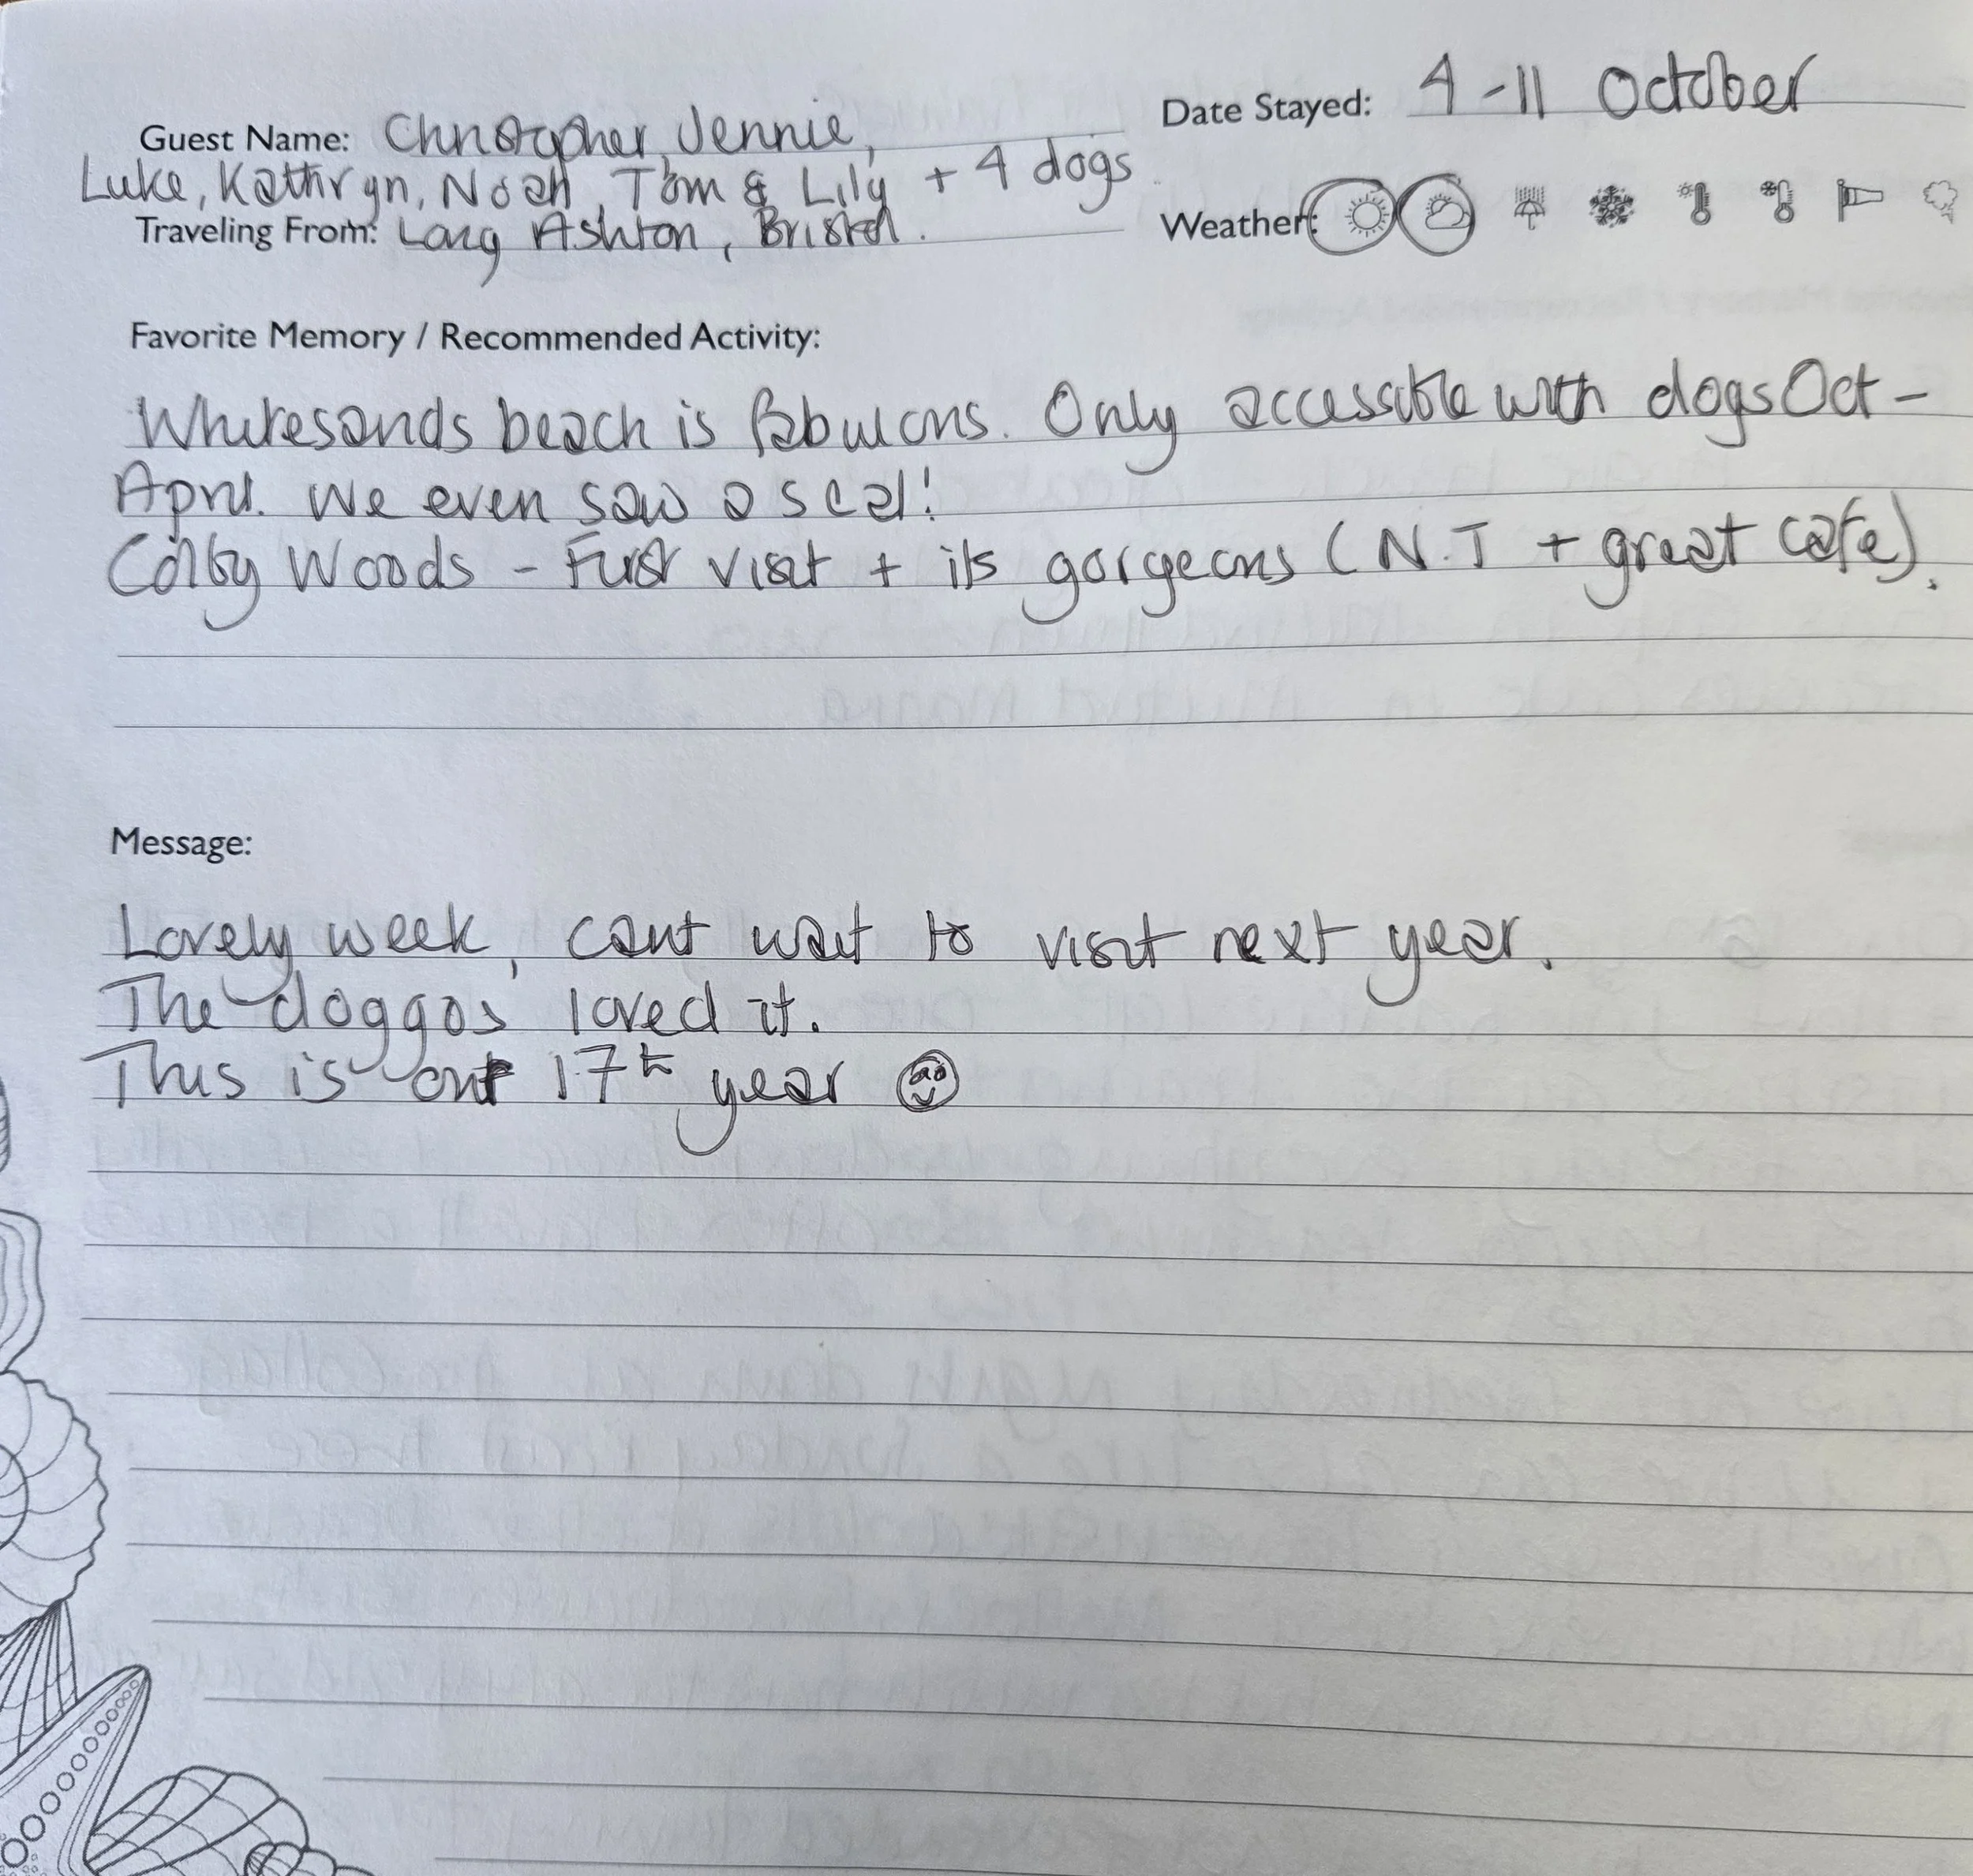 Guest Name: Christopher, Jennie,
Luke, Kathryn, Noah, Tom & Lily + 4 dogs
Traveling From: Long Ashton, Bristol.
Date Stayed: 4-11 October
Weather:
Favorite Memory / Recommended Activity:
Whitesands beach is fabulous. Only accessible with dogs Oct -
April. We even saw a seal!
Colby Woods - First visit + its gorgeous (N.T + great cafe).
Message:
Lovely week, cant wait to visit next year.
The doggos loved it.
This is our 17th year